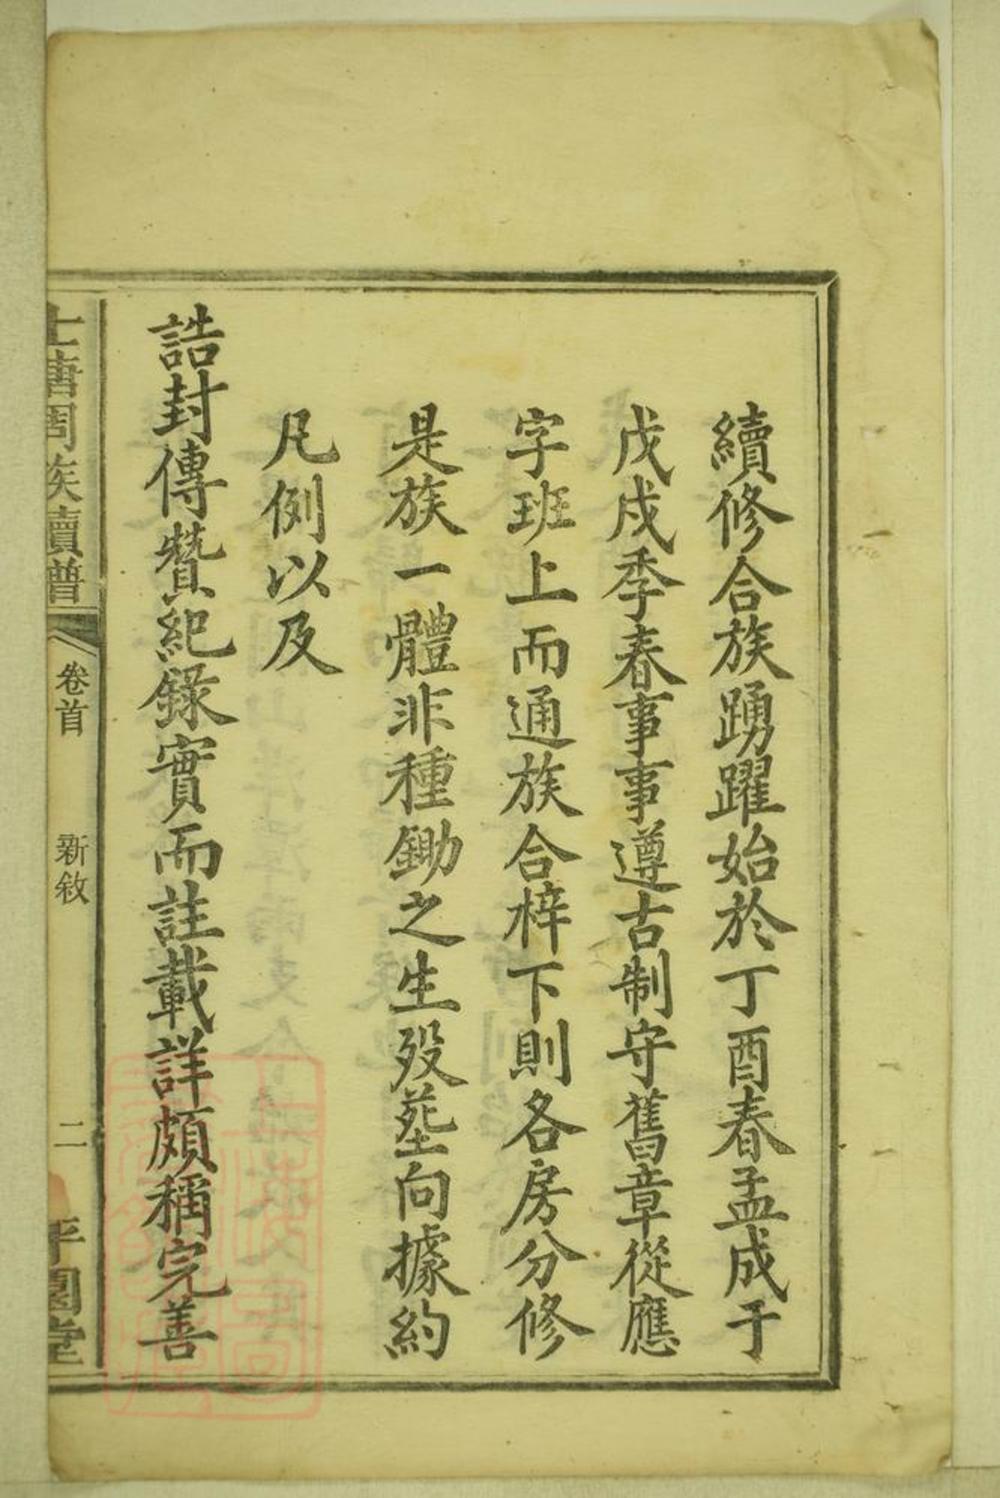 續修合族踴躍始於丁酉春孟成于
戊戌季春事事遵古制守舊章從應
字班上而通族合梓下則各房分修
是族一體非種鋤之生歿塟向據約
凡例以及
誥封傳贊紀錄實而註載詳頗稱完善
上唐周族續譜 卷首 新敘 二 平園堂